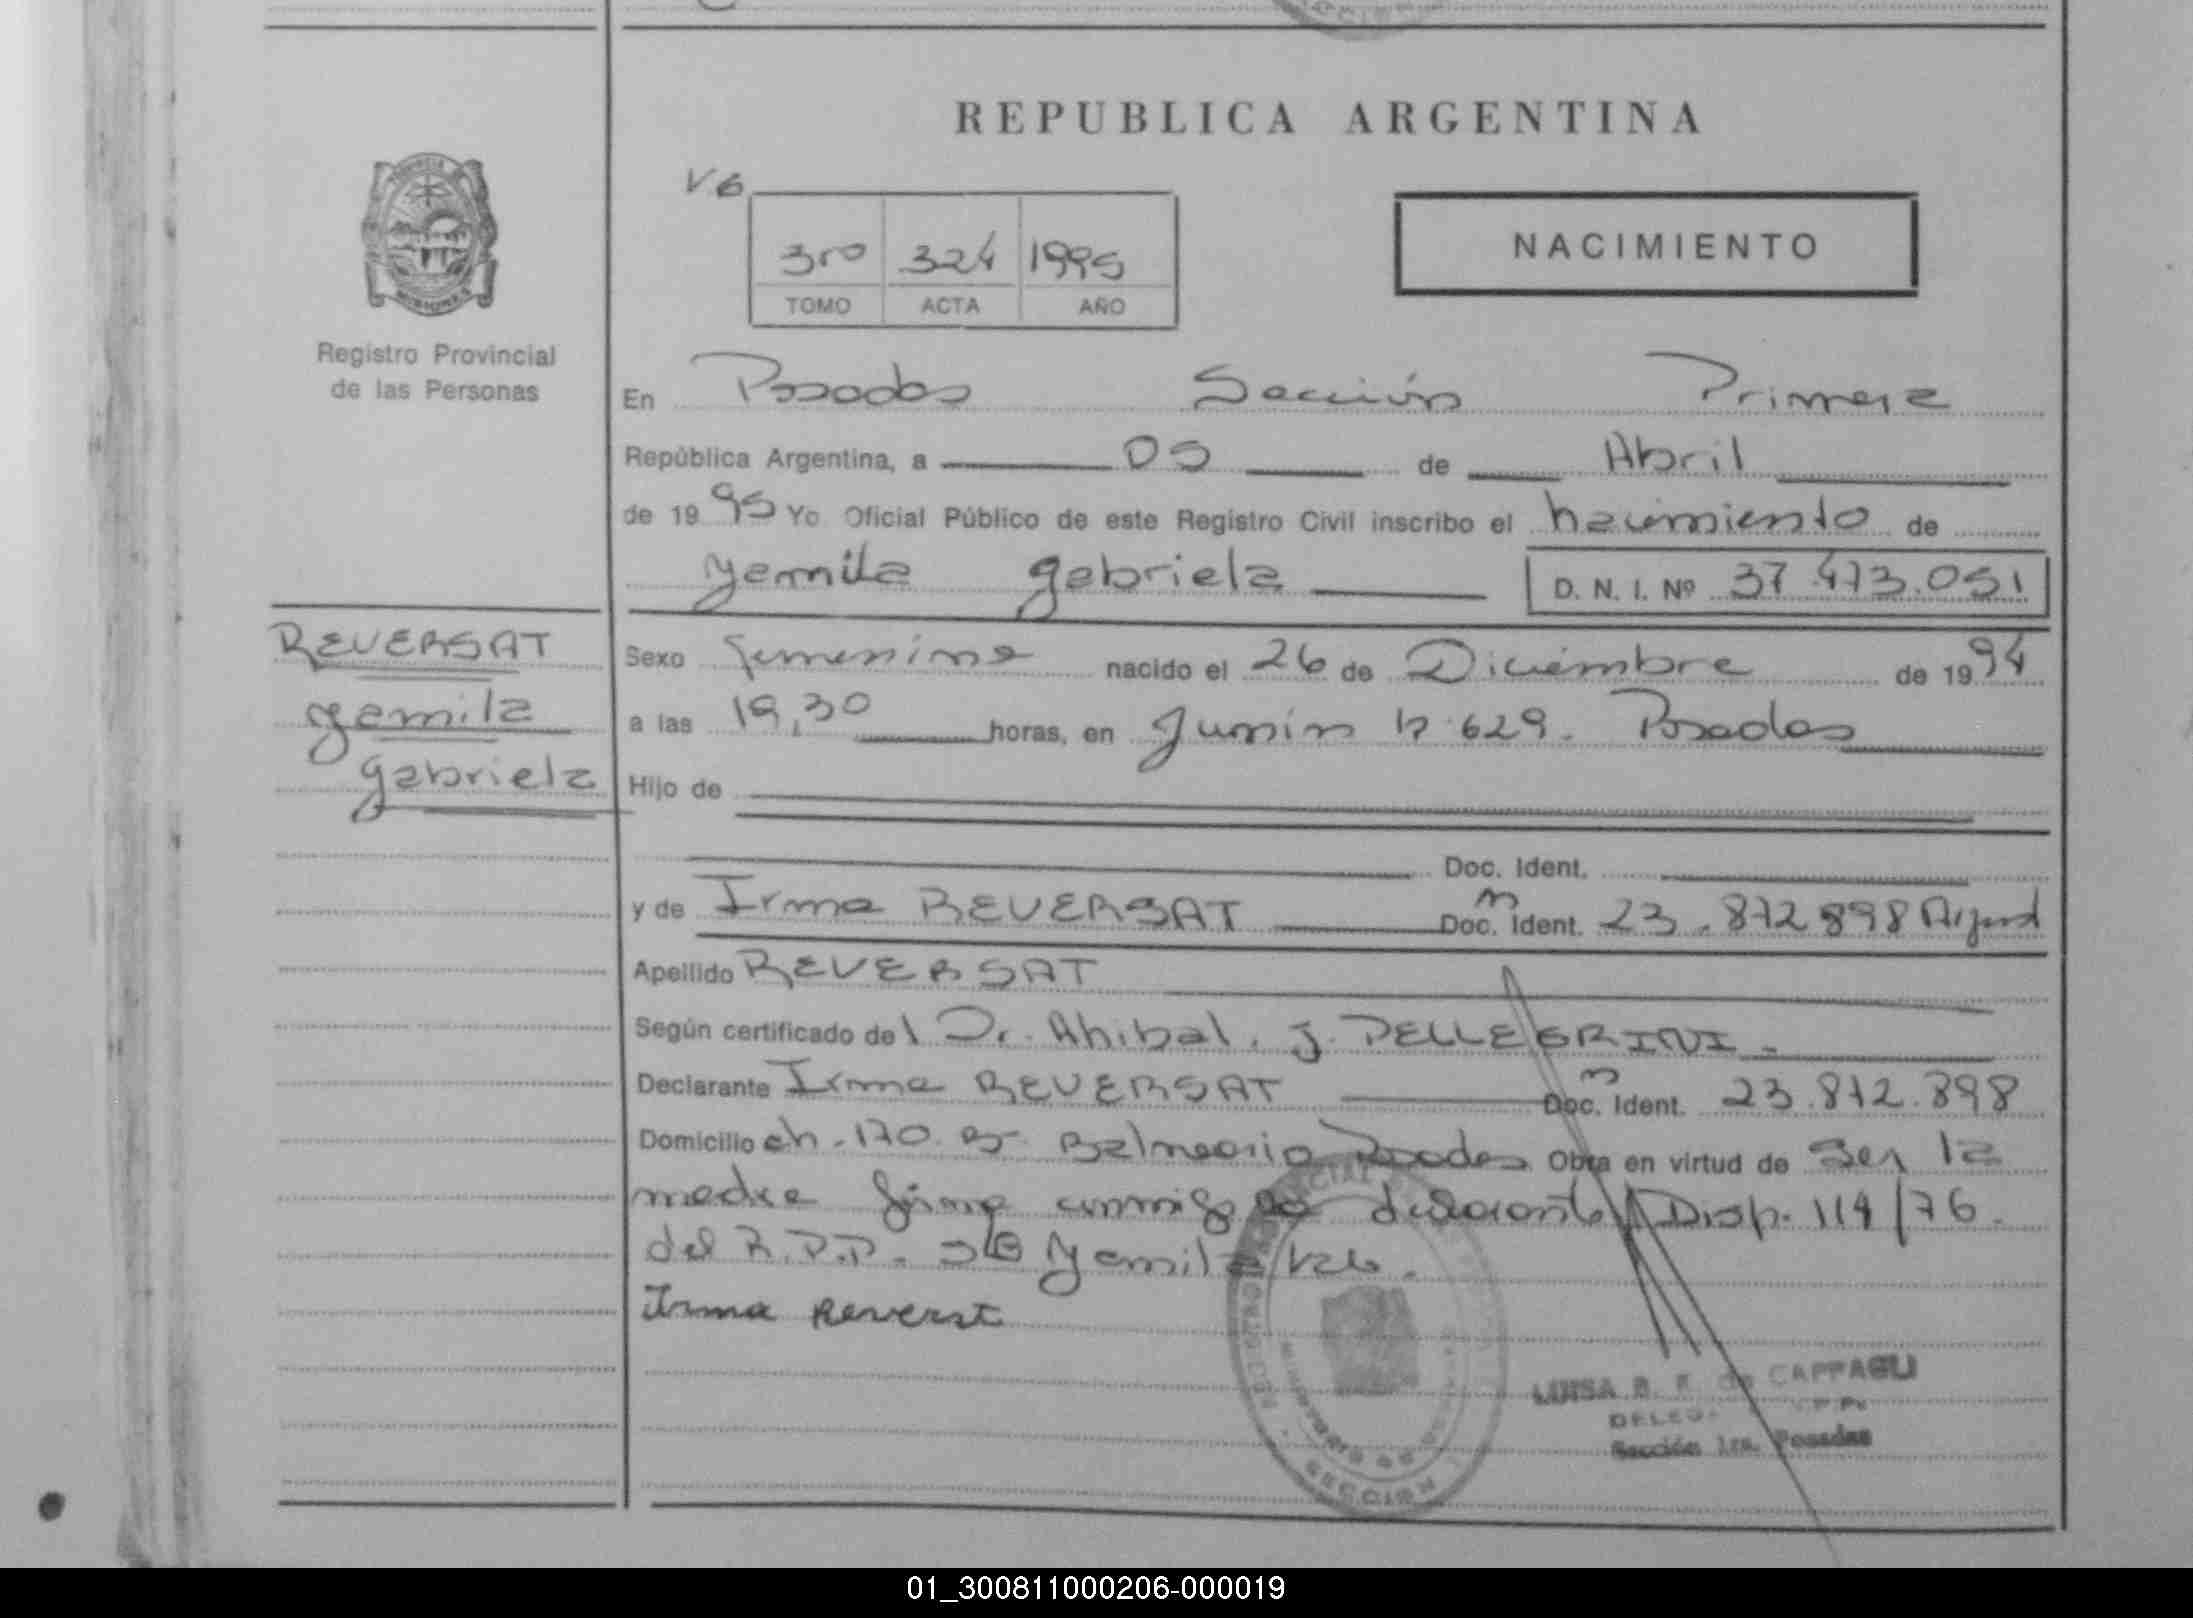 REPUBLICA ARGENTINA
V6
3ro 324 1995
TOMO ACTA AÑO
NACIMIENTO
PROVINCIA
MISIONES
Registro Provincial
de las Personas
En Posadas Sección Primera
República Argentina, a 05 de Abril
de 1995 Yo Oficial Público de este Registro Civil inscribo el nacimiento de
Yamila Gabriela D. N. I. Nº 37.473.051
REVERSAT
Yamila
Gabriela
Sexo femenino nacido el 26 de Diciembre de 1994
a las 19,30 horas, en Junín n 629. Posadas
Hijo de
Doc. Ident.
y de Irma REVERSAT Doc. Ident. 23.872898 Argend
Apellido REVERSAT
Según certificado del Dr. Anibal. J. PELLEGRINI
Declarante Irma REVERSAT Doc. Ident. 23.872.898
Domicilio ch. 170. Bº Balneario Posadas Obra en virtud de ser la
madre firma conmigo la declarante Disp. 114/76.
del R.P.P. Yamila Vale.
Irma Reverst
LUISA B. F. de CAPPAGLI
DELEG.
Sección 1ra. Posadas
01_300811000206-000019